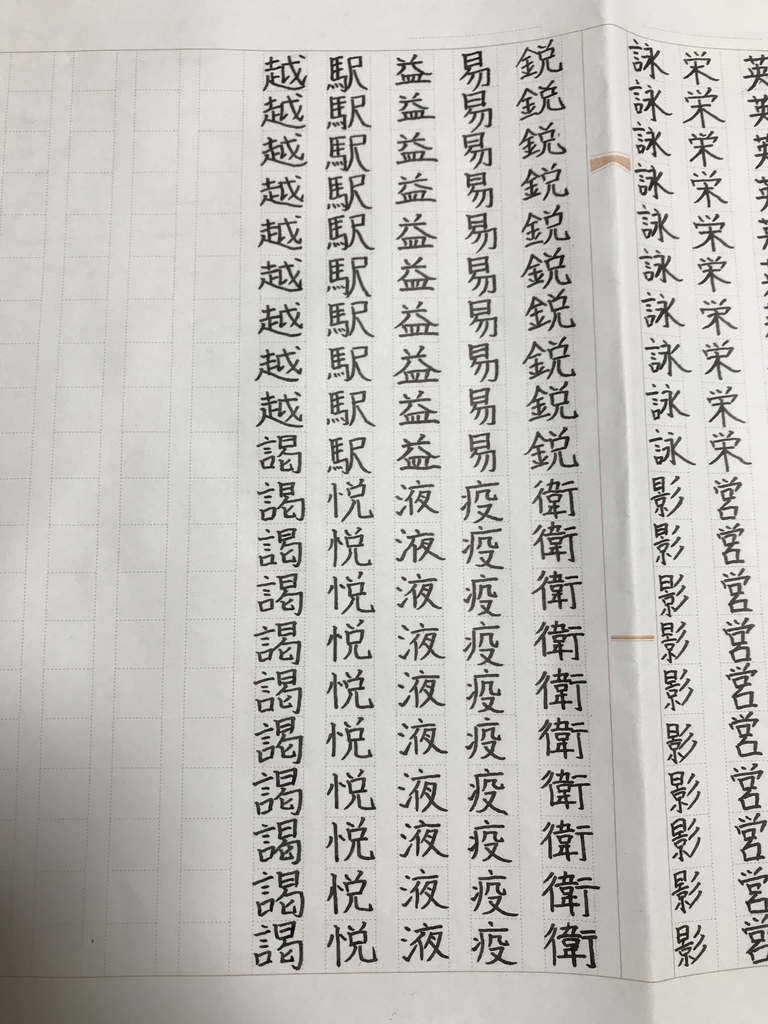 英英英英
栄栄栄栄栄栄栄栄栄栄営営営営営営営営営営
詠詠詠詠詠詠詠詠詠詠影影影影影影影影影影
鋭鋭鋭鋭鋭鋭鋭鋭鋭鋭衛衛衛衛衛衛衛衛衛衛
易易易易易易易易易易疫疫疫疫疫疫疫疫疫疫
益益益益益益益益益益液液液液液液液液液液
駅駅駅駅駅駅駅駅駅駅悦悦悦悦悦悦悦悦悦悦
越越越越越越越越越謁謁謁謁謁謁謁謁謁謁謁